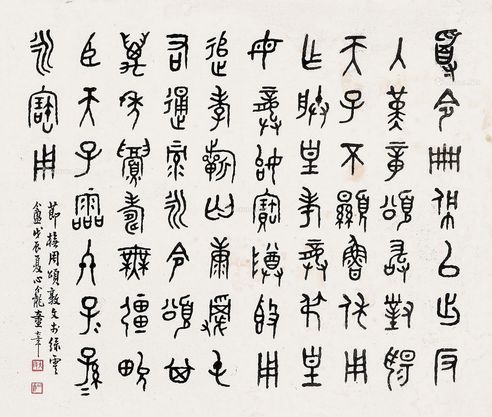 受令冊佩以出反
入堇章頌敢對揚
天子不顯魯休用
乍朕皇考龏弔皇
母龏姒寶尊𣪘用
追孝祈匄康屯
右通彔永令頌其
萬年眉壽無彊畯
臣天子霝冬子=孫=
永寶用
節橅周頌敦文於綠雲
盦戊辰夏心龕童